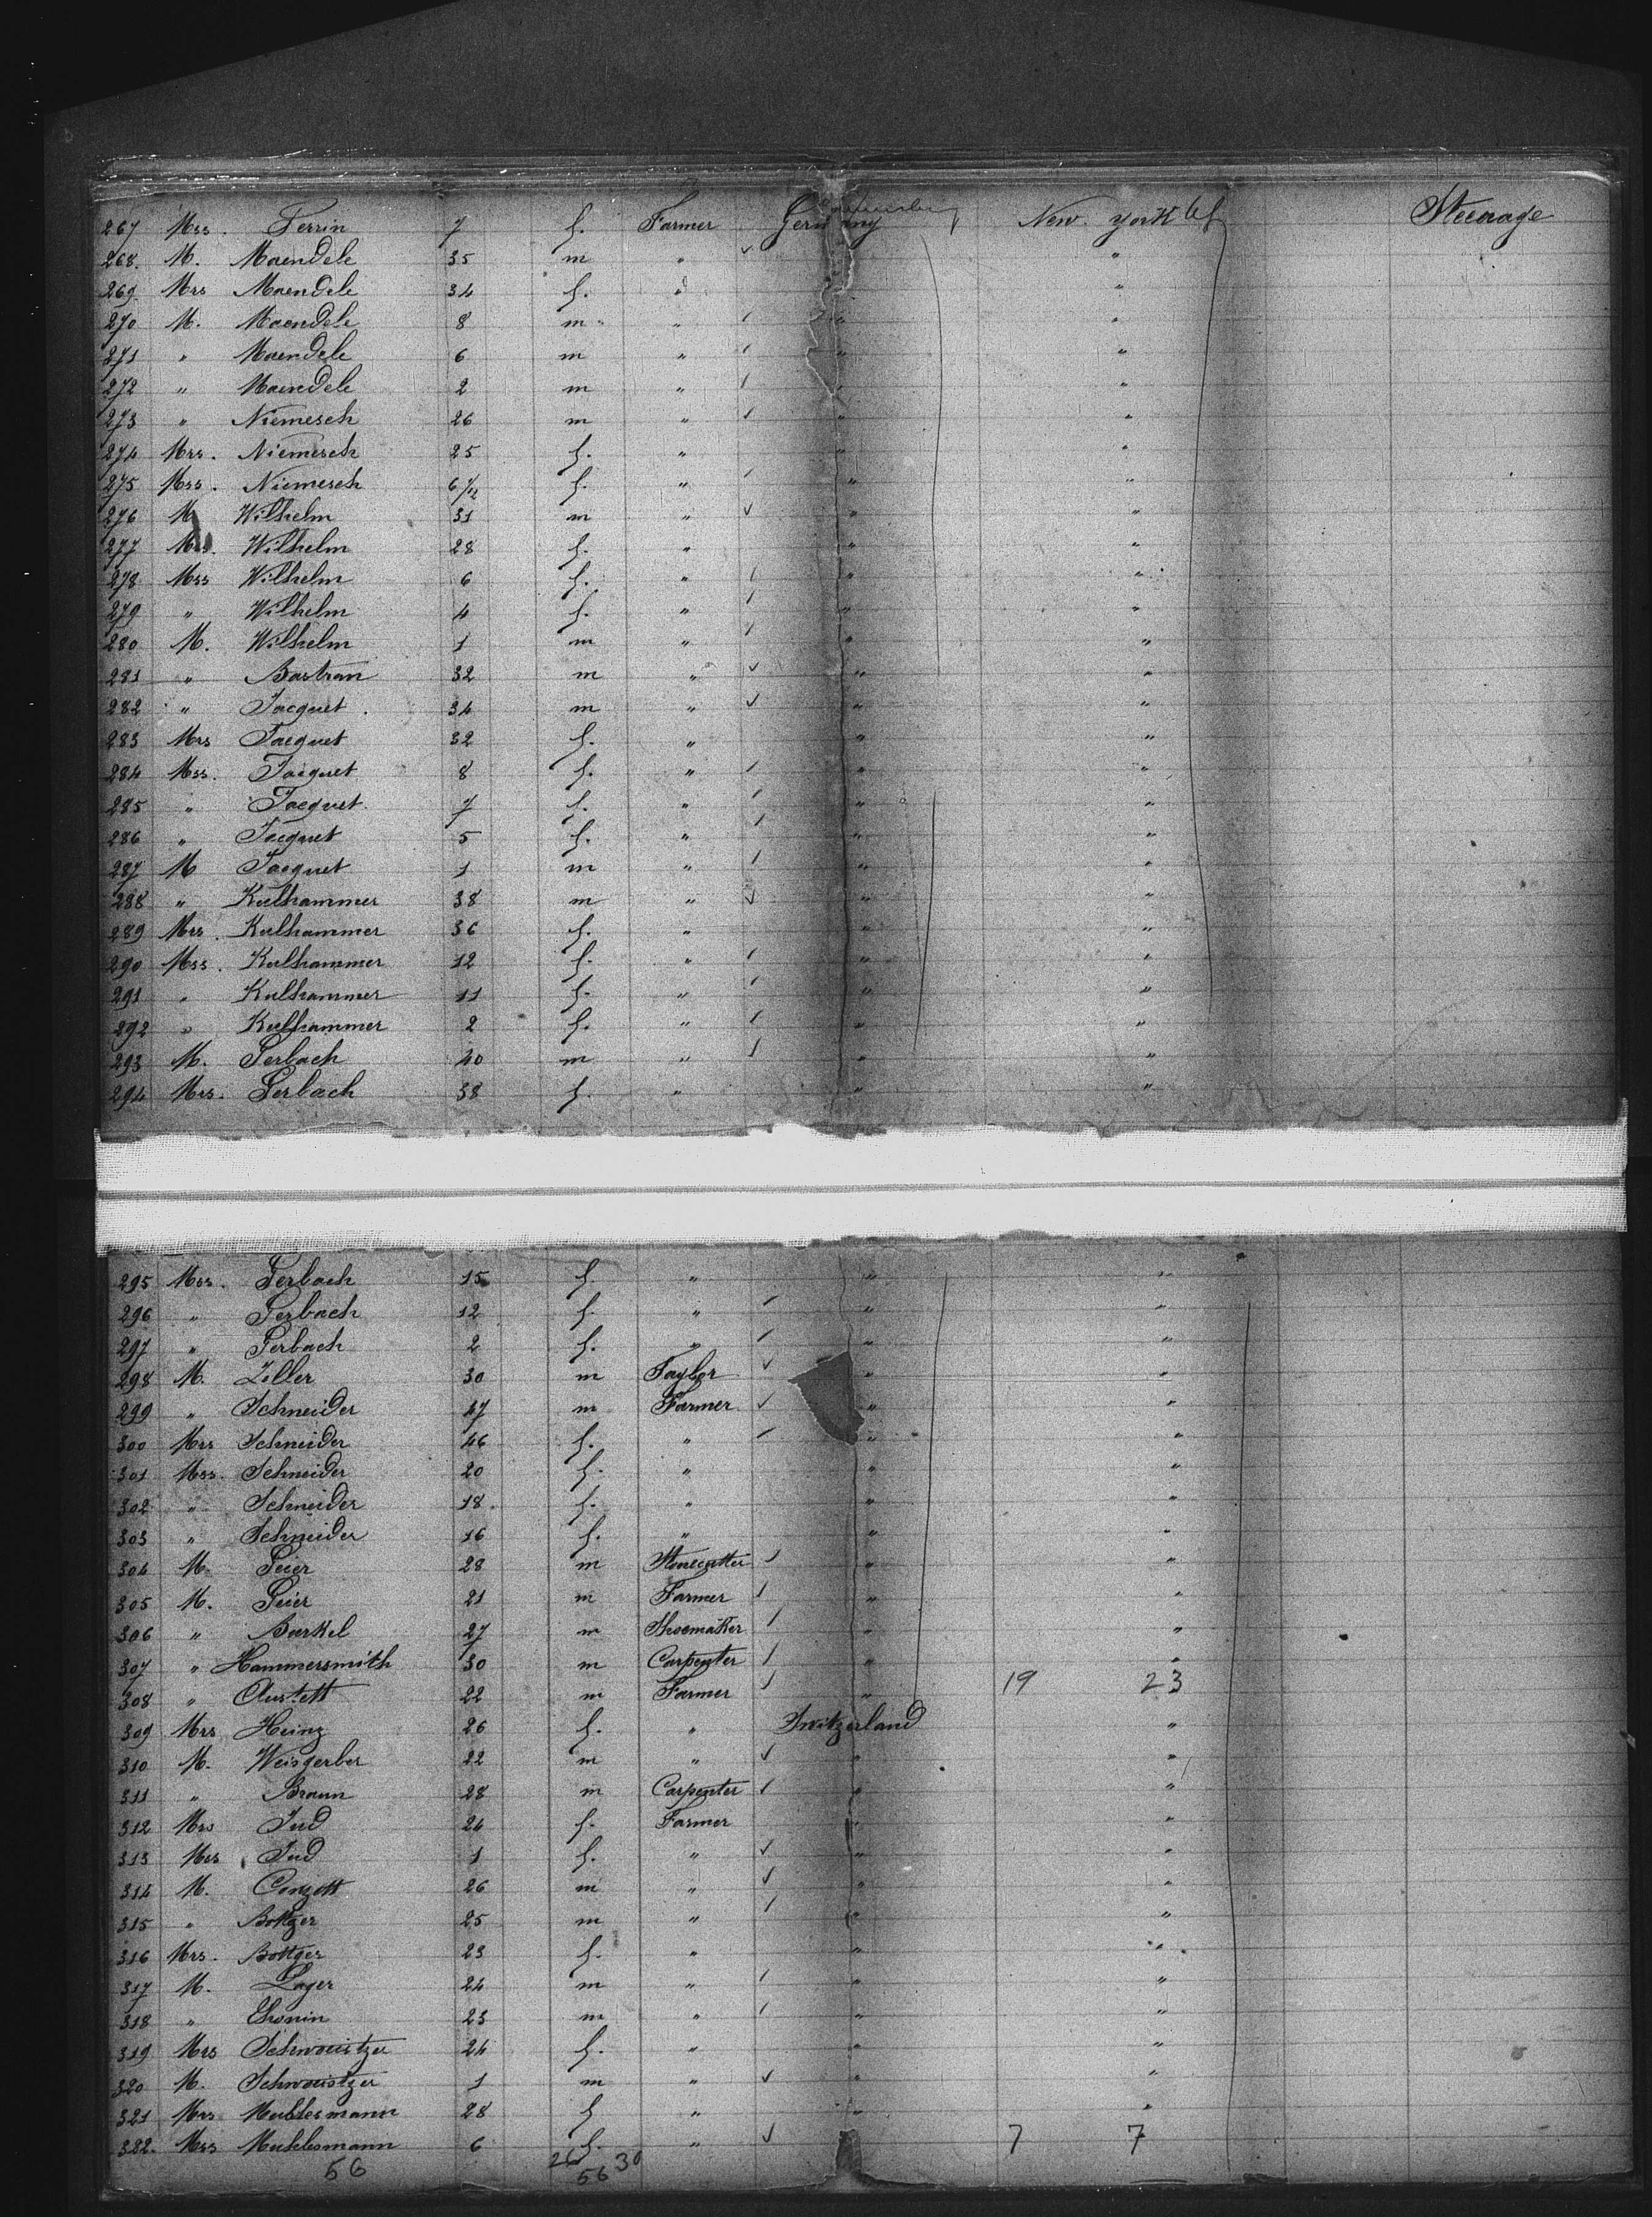 267 Mss. Ferrin 7 f. Farmer Germany New York Steerage
268. M. Maendele 35 m " " "
269. Mrs Maendele 34 f. " " "
270 M. Maendele 8 m " " "
271 " Maendele 6 m " " "
272 " Maendele 2 m " " "
273 " Niemesch 26 m " " "
274 Mrs. Niemesch 25 f. " " "
275 Mss. Niemesch 6/12 f. " " "
276 M Wilhelm 31 m " " "
277 Mrs. Wilhelm 28 f. " " "
278 Mss Wilhelm 6 f. " " "
279 " Wilhelm 4 f. " " "
280 M. Wilhelm 1 m " " "
281 " Bastran 32 m " " "
282 " Jacquet. 34 m " " "
283 Mrs Jacquet 32 f. " " "
284 Mss. Jacquet 8 f. " " "
285 " Jacquet. 7 f. " " "
286 " Jacquet 5 f. " " "
287 M Jacquet 1 m " " "
288 " Kulhammer 38 m " " "
289 Mrs. Kulhammer 36 f. " " "
290 Mss. Kulhammer 12 f. " " "
291 " Kulhammer 11 f. " " "
292 " Kulhammer 2 f. " " "
293 M. Gerbach 40 m " " "
294 Mrs. Gerbach 38 f. " " "
295 Mss. Gerbach 15 f. " " "
296 " Gerbach 12 f. " " "
297 " Gerbach 2 f. " " "
298 M. Zeller 30 m Taylor " "
299 " Schneider 47 m Farmer " "
300 Mrs Schneider 46 f. " " "
301 Mss. Schneider 20 f. " " "
302 " Schneider 18. f. " " "
303 " Schneider 16 f. " " "
304 M. Geier 28 m Stonecutter " "
305 M. Geier 21 m Farmer " "
306 " Barkel 27 m Shoemaker " "
307 " Hammersmith 30 m Carpenter " "
308 " Austett 22 m Farmer " 19 23
309 Mrs Heinz 26 f. " Switzerland "
310 M. Weisgerber 22 m " " "
311 " Braun 28 m Carpenter " "
312 Mrs Jud 24 f. Farmer " "
313 Mss Jud 1 f. " " "
314 M. Conzett 26 m " " "
315 " Bottger 25 m " " "
316 Mrs. Bottger 23 f. " " "
317 M. Lager 24 m " " "
318 " Thonin 23 m " " "
319 Mrs Schwouitzer 24 f. " " "
320 M. Schwouitzer 1 m " " "
321 Mrs Muhlesmann 28 f " " "
322. Mss Muhlesmann 6 f. " 7 7
56 26 30
56